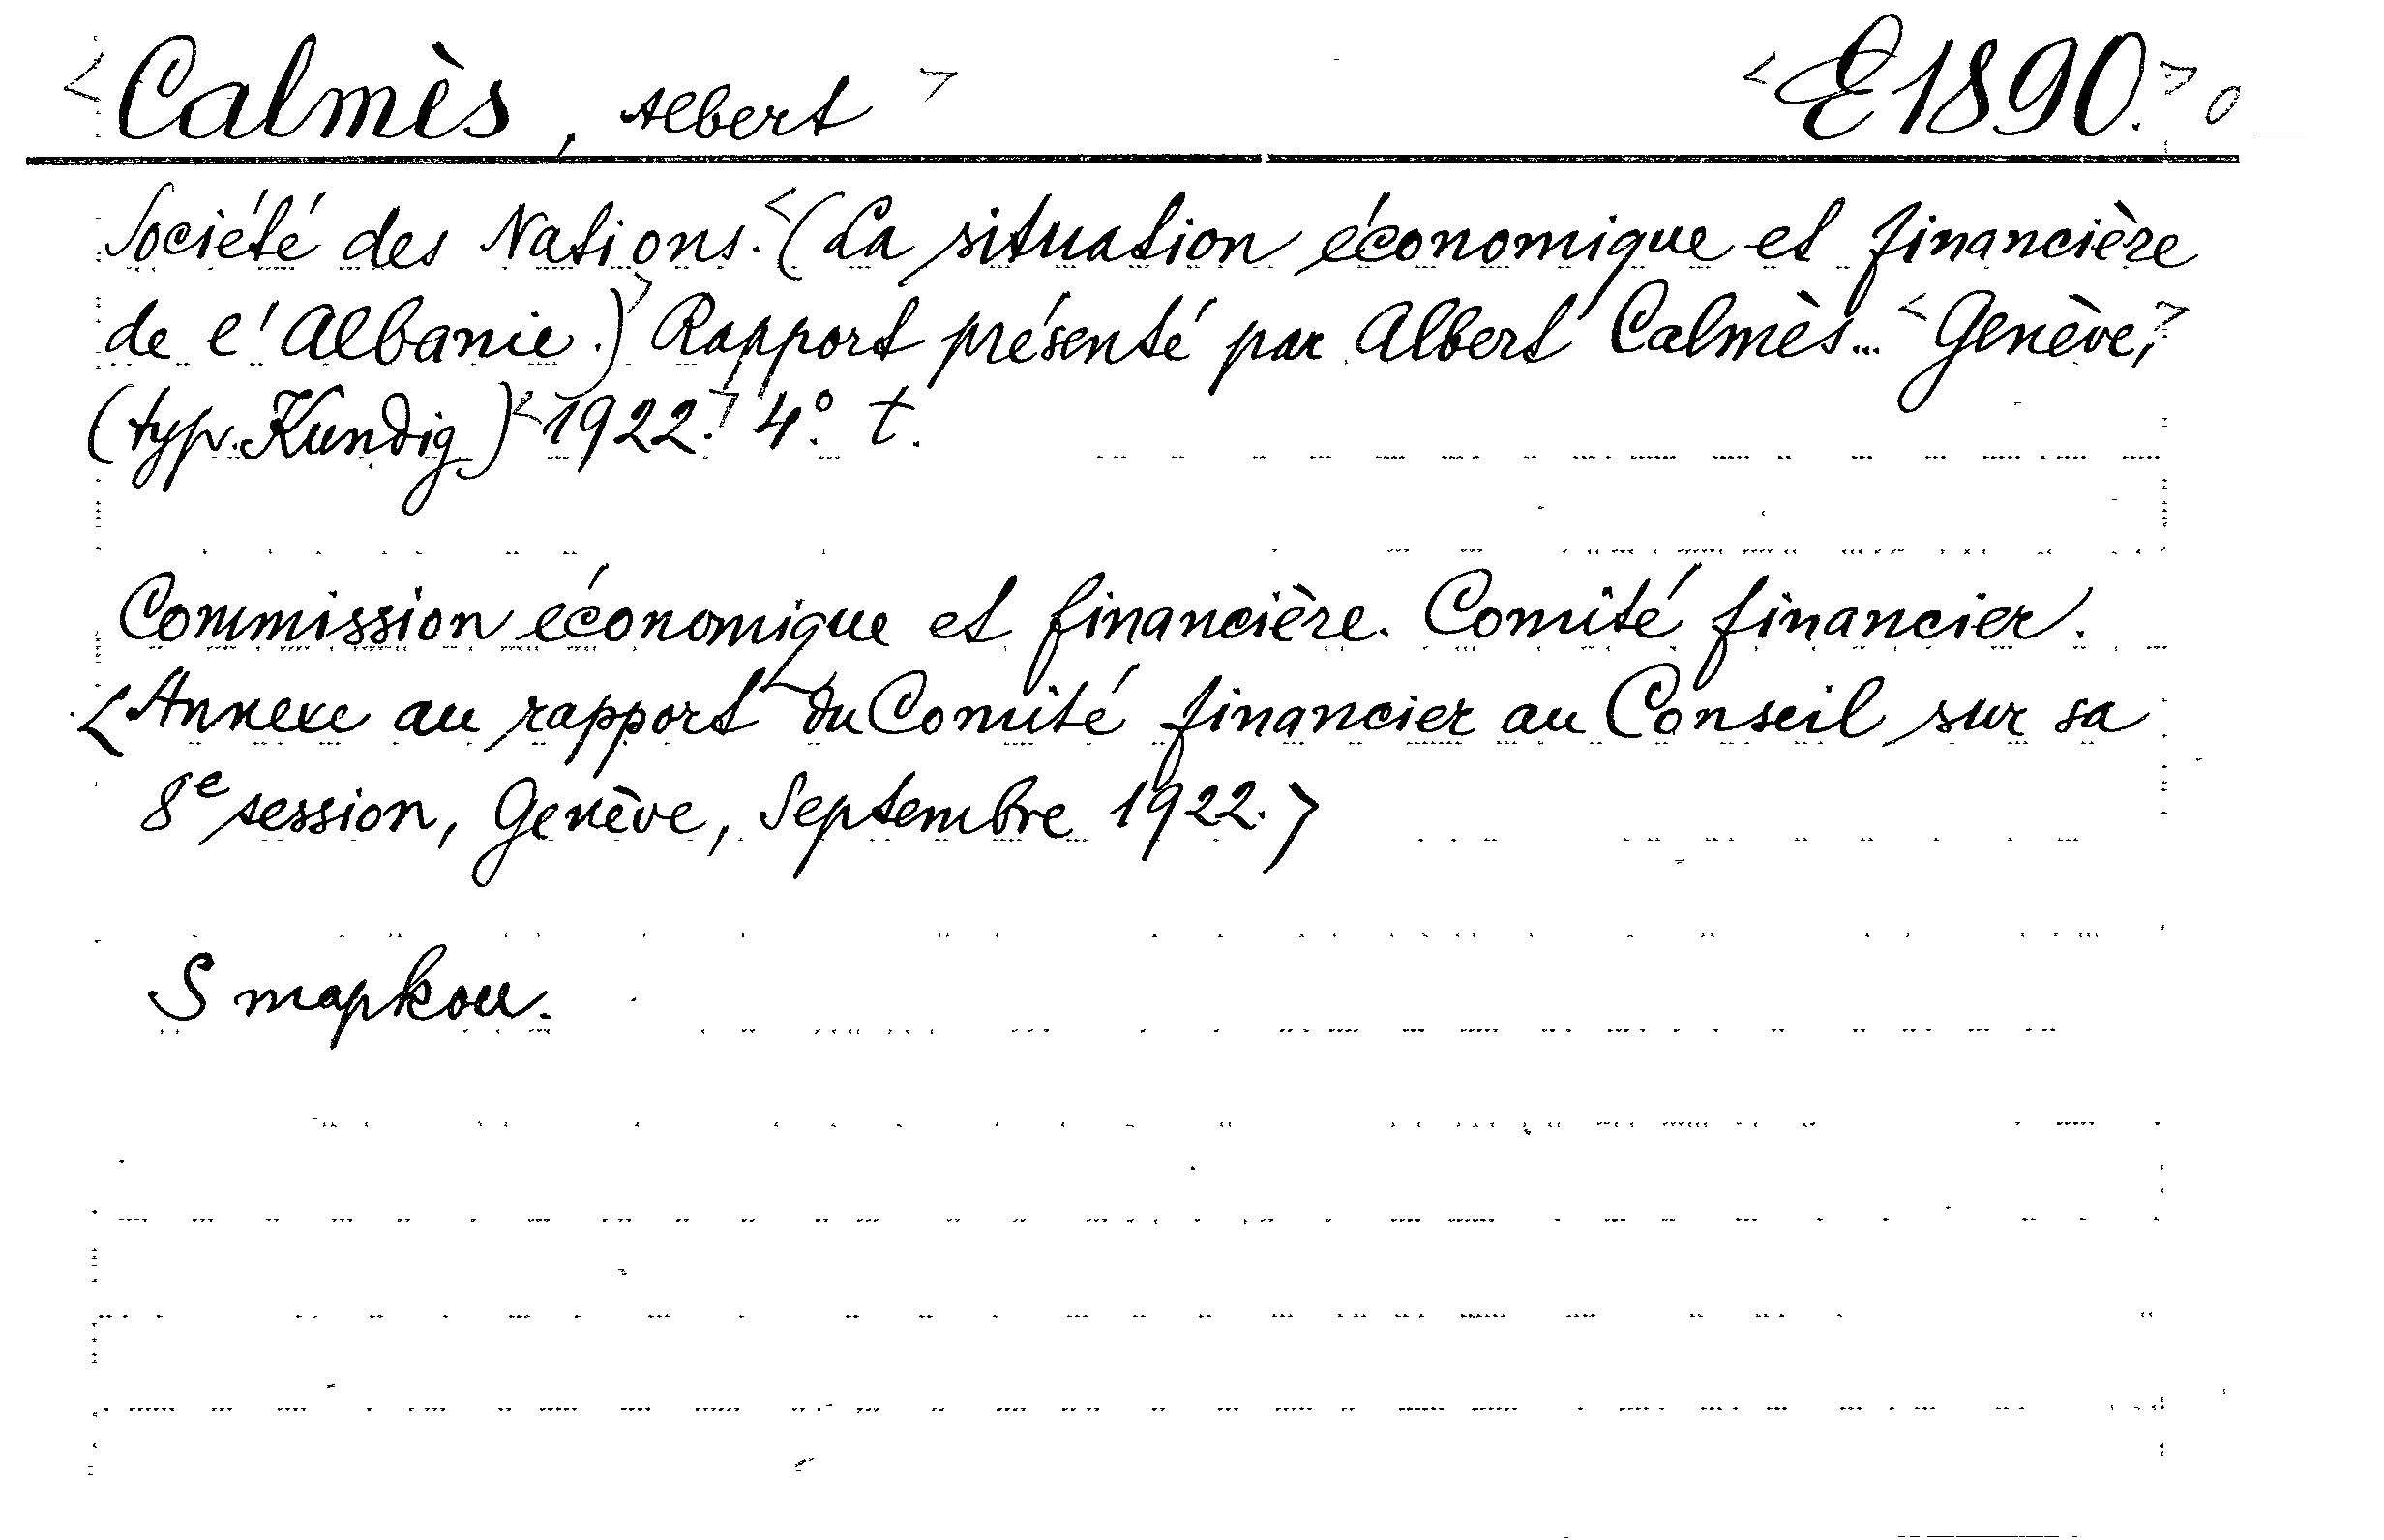 <Calmès, Albert> <E1890.> 0
Société des Nations. <(La situation économique et financière
de l'Albanie.)> Rapport présenté par Albert Calmès... <Genève,>
(typ. Kundig) <1922.> 4º. t.
Commission économique et financière. Comité financier.
<Annexe au rapport du Comité financier au Conseil sur sa
8e session, Genève, Septembre 1922.>
S mapkou.